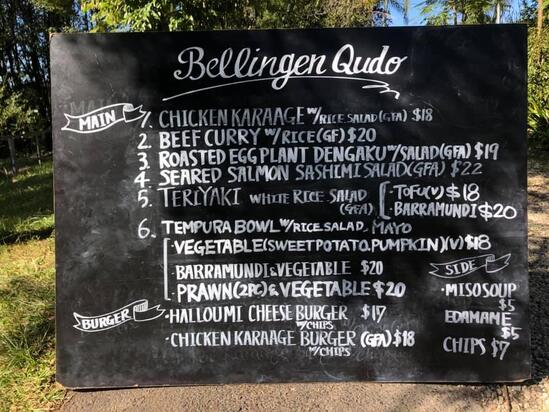 Bellingen Qudo
MAIN
1. CHICKEN KARAAGE W/RICE, SALAD (GFA) $18
2. BEEF CURRY W/RICE (GF) $20
3. ROASTED EGG PLANT DENGAKU W/SALAD (GFA) $19
4. SEARED SALMON SASHIMI SALAD (GFA) $22
5. TERIYAKI WHITE RICE SALAD (GFA)
・TOFU(V) $18
・BARRAMUNDI $20
6. TEMPURA BOWL W/RICE, SALAD, MAYO
・VEGETABLE (SWEET POTATO, PUMPKIN) (V) $18
・BARRAMUNDI & VEGETABLE $20
・PRAWN (2PC) & VEGETABLE $20
BURGER
・HALLOUMI CHEESE BURGER $17
W/CHIPS
・CHICKEN KARAAGE BURGER (GFA) $18
W/CHIPS
SIDE
・MISO SOUP
$5
EDAMAME
$5
CHIPS $7